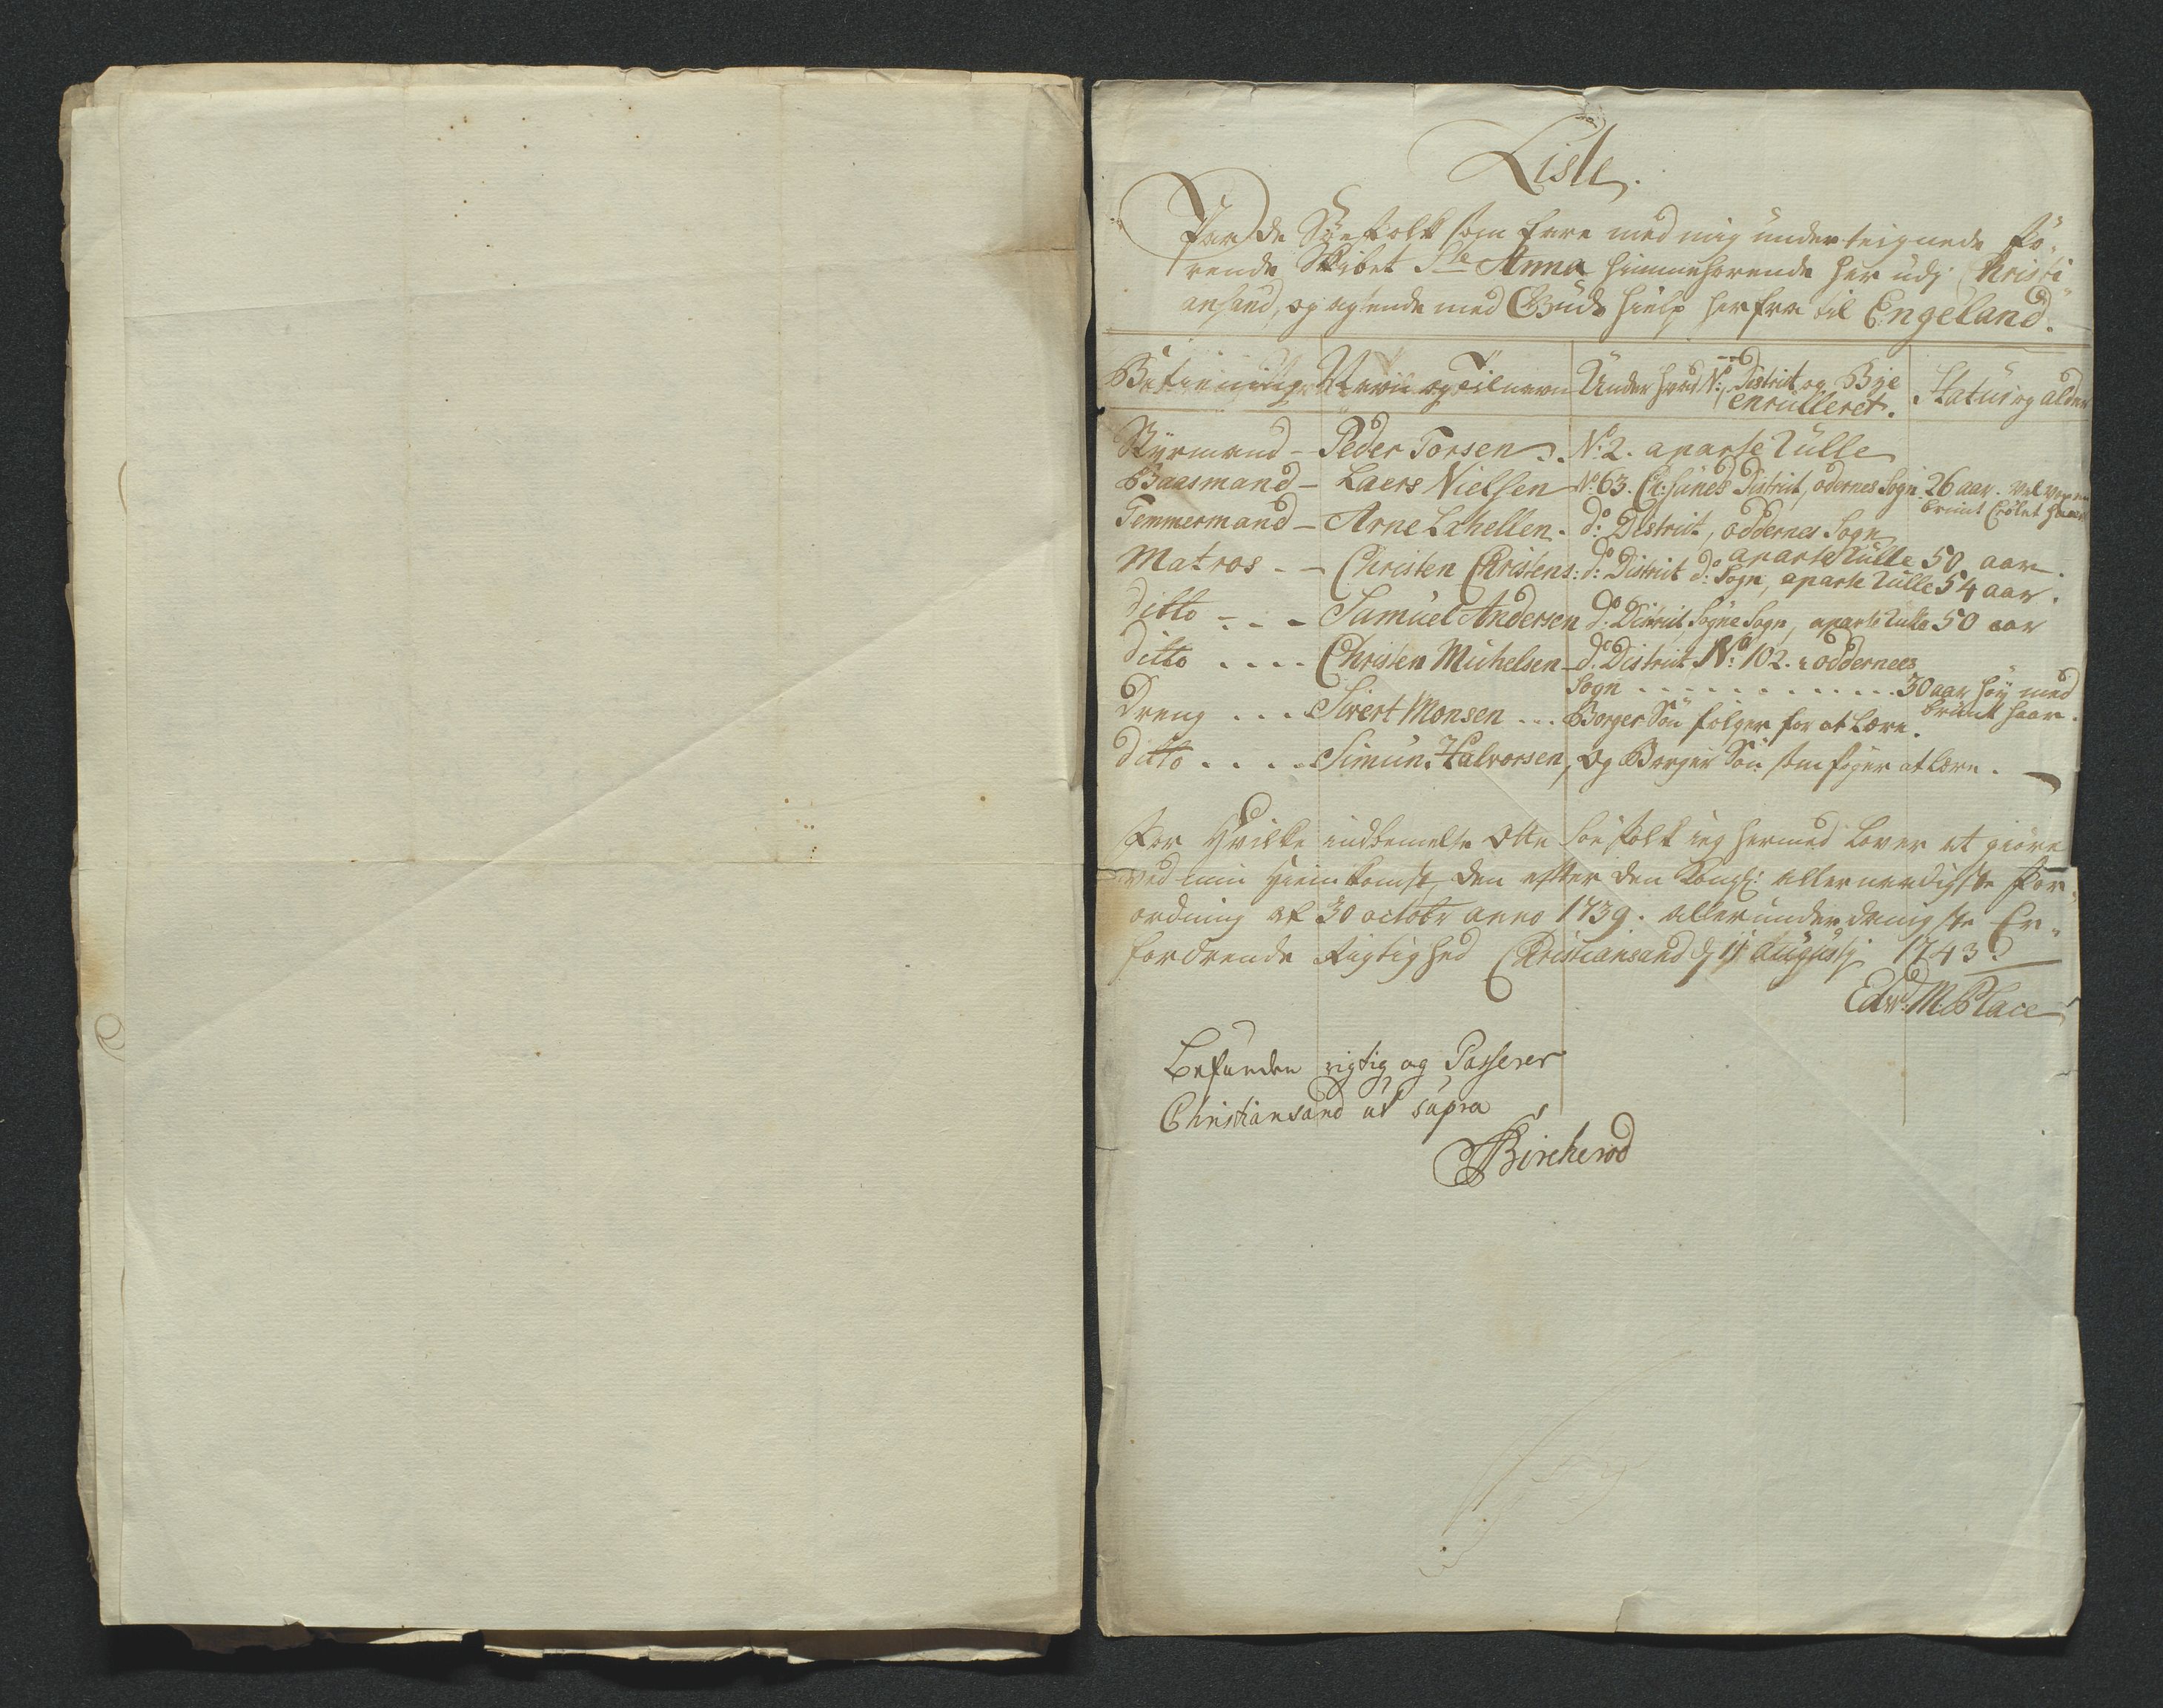 Liste.
Paa de Siøefolk som fare med mig underteignede fö-
rende Skibet Ste Anna hiemmehørende her udj Christi-
ansand, og agtende med Guds hielp herfra til Engeland.
Betiening Navn og Tilnavn Under hvad No: District og Bye Statur og alder
enrulleret.
Styrmand - Peder Torsen No: 2. aparte Rulle
Baasmand - Laers Nielsen No 63. Ch:sands District, odernes Sogn. 26 aar. vel voxen
brunt Crölet haar
Temmermand - Arne Lahellen. do: District, oddernes Sogn
aparte Rulle 50 aar.
Matros - - Christen Christens: do: District do: Sogn, aparte Rulle 54 aar.
ditto - - - Samuel Andersen do: District, Sögne Sogn, aparte Rulle 50 aar
ditto .... Christen Michelsen - do: District No: 102. oddernees
Sogn ............. 30 aar höy med
brunt haar.
Dreng ... Sivert Monsen ... Borger Sön følger for at lære.
ditto .... Simun Halvorsen, og Borger Sön som følger at lære.
For Hvilke indbemelte Otte Söefolk ieg hermed lover at giöre
ved min Hiemkomst, den efter den Kongl: allernaadigste For-
ordning af 30 octobr anno 1739. allerunderdanigste Er-
fordrende Rigtighed Christiansand d 11 Augustj 1743.
Edvd: M. Place
Befunden rigtig og Passerer
Christiansand ut supra
Bircherod